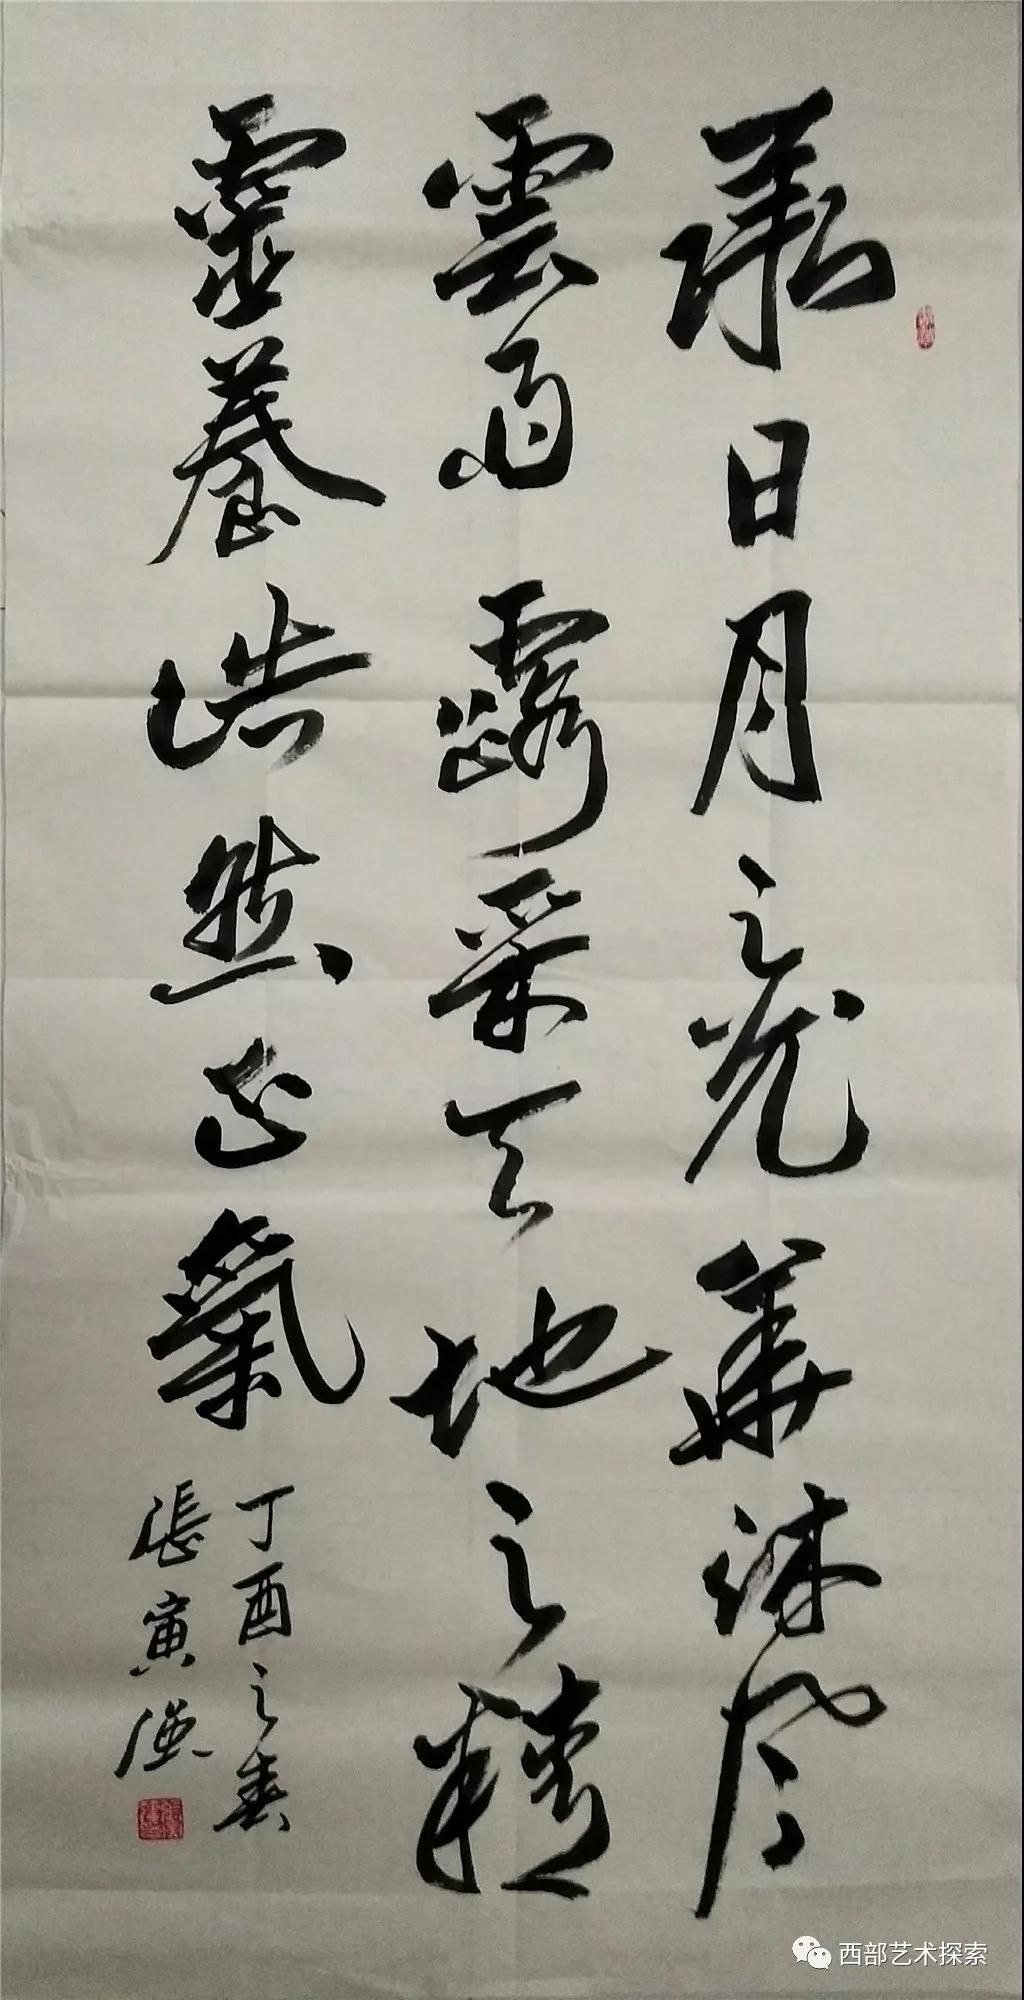 日月之光華沐風
雲雨露采天地之精
靈養浩然正氣
丁酉之春
張寅
西部艺术探索